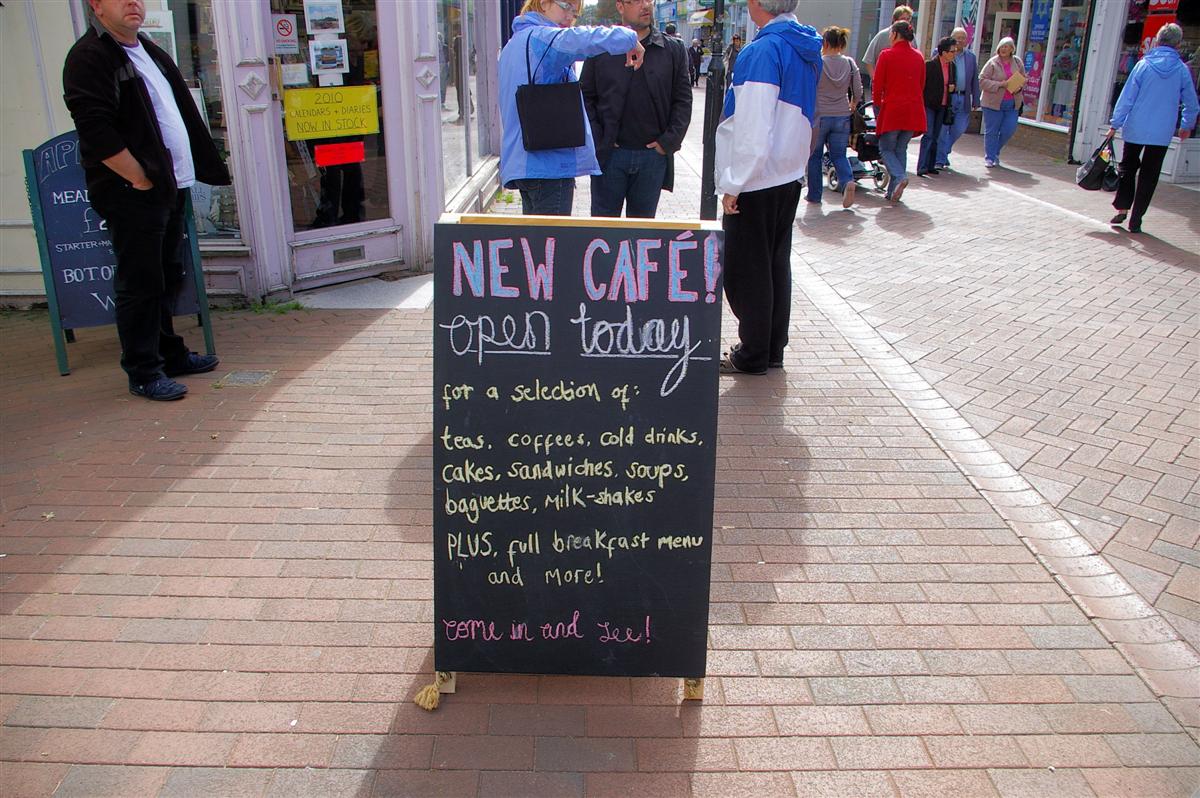 2010
CALENDARS + DIARIES
NOW IN STOCK
NEW CAFÉ!
open today.
for a selection of:
teas, coffees, cold drinks,
cakes, sandwiches, soups,
baguettes, Milk-shakes
PLUS, full breakfast menu
and More!
come in and see!